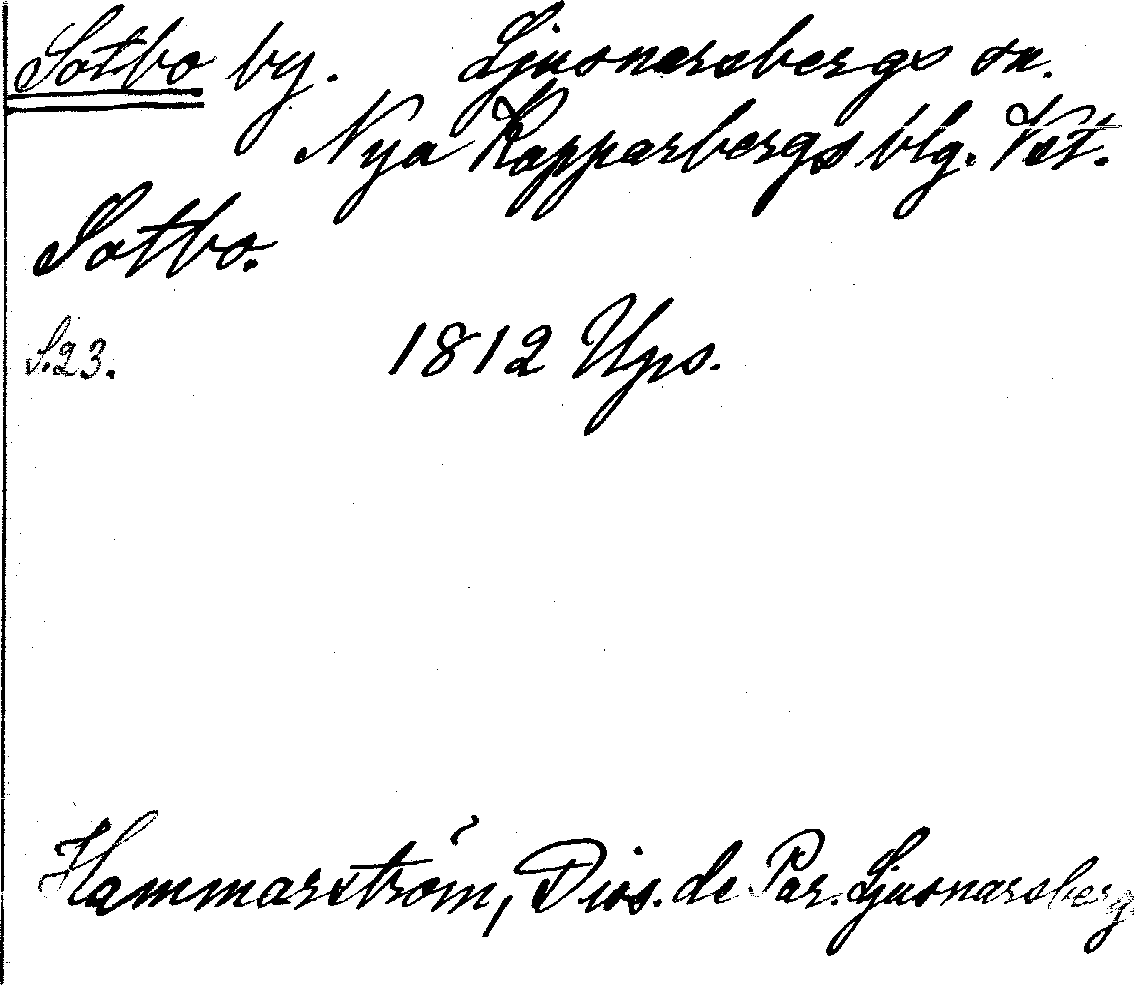 Sotbo by. Ljusnarsbergs sn.
Nya Kopparbergs blg. Vst.
Sotbo.
S.23. 1812 Ups.
Hammarström, Diss. de Par. Ljusnarsberg